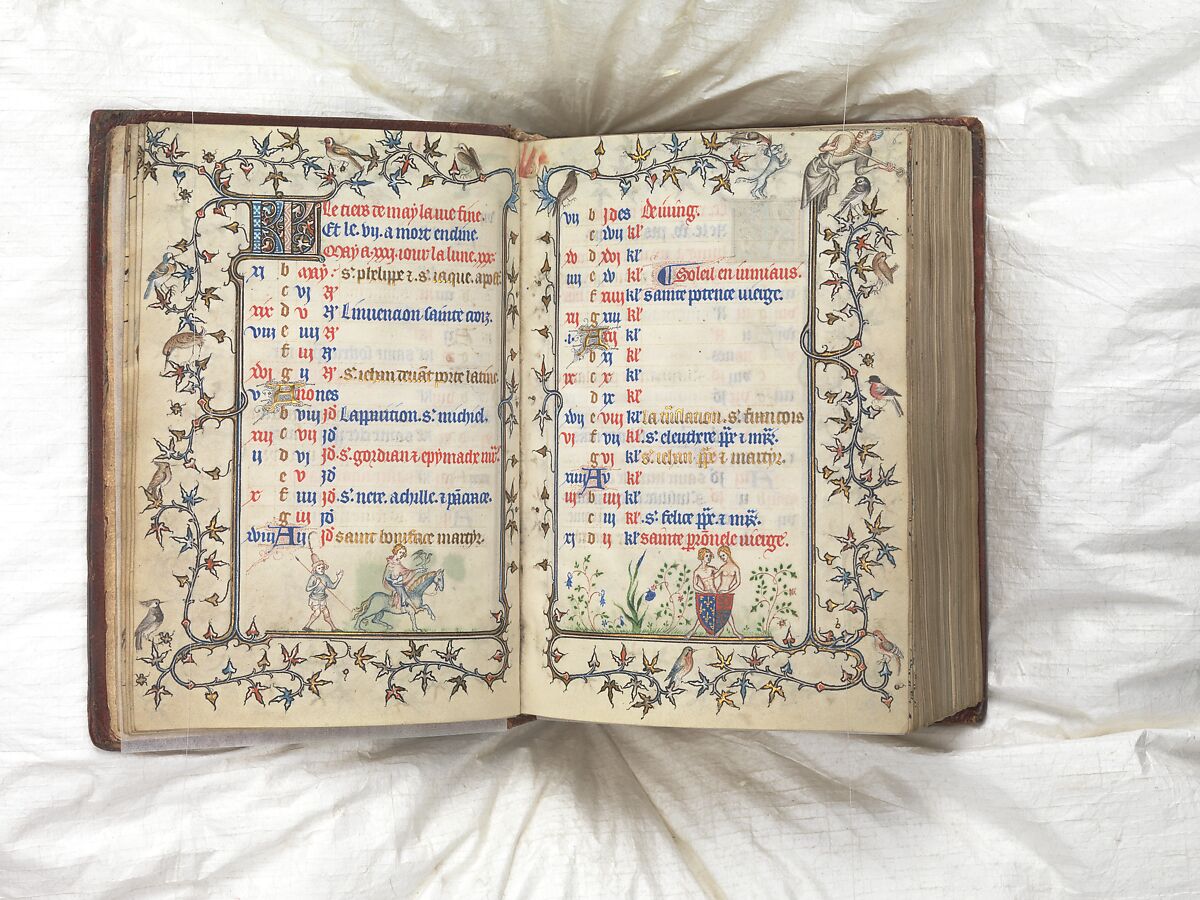 KL
Le tiers de may la vie fine.
Et le .vij. a mort encline
May a .xxxj. iour la lune .xxx.
xj b may. s. phelippe &. s. iaque. apost.
c vj N
xix d v N Linuencion sainte croiz.
viij e iiij N
f iij N
xvj g ij N s. iehan deuant porte latine
v A nones
b viij jd Lapparition. s. michiel.
xiij c vij jd
ij d vj jd s. gordian & epymache mr.
e v jd
x f iiij jd s. nere. achille. & panace.
g iij jd
xviij A ij jd saint boniface martyr.
vij b jdes
c xvij kl
xv d xvj kl
iiij e xv kl Soleil en iumiaus.
f xiiij kl sainte potence uierge.
xij g xiij kl
j A xij kl
b xj kl
ix c x kl
d ix kl
xvij e viij kl la translation. s. francois
vj f vij kl s. eleuthere ppe & mr.
g vj kl s. iehan ppe & martyr.
xiiij A v kl
iij b iiij kl
c iij kl s. felice ppe. & mr.
xj d ij kl sainte peronele uierge.